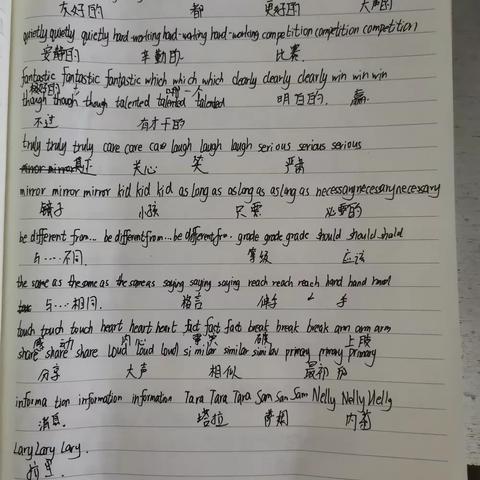 友好的 都 更好的 大声的
quietly quietly quietly hard-working hard-working hard-working competition competition competition
安静的 辛勤的 比赛
fantastic fantastic fantastic which which which clearly clearly clearly win win win
极好的 哪一个 明白的 赢
though though though talented talented talented
不过 有才干的
truly truly truly care care care laugh laugh laugh serious serious serious
真正 关心 笑 严肃
mirror mirror mirror kid kid kid as long as as long as as long as necessary necessary necessary
镜子 小孩 只要 必要的
be different from... be different from... be different fro.. grade grade grade should should should
与…不同. 等级 应该
the same as the same as the same as saying saying saying reach reach reach hand hand hand
与…相同. 格言 伸手 手
touch touch touch heart heart heart fact fact fact break break break arm arm arm
感动 内心 事实 破 上肢
share share share loud loud loud similar similar similar primary primary primary
分享 大声 相似 最初的
information information information Tara Tara Tara Sam Sam Sam Nelly Nelly Nelly
消息. 塔拉 萨姆 内莉
Lary Lary Lary.
拉里.